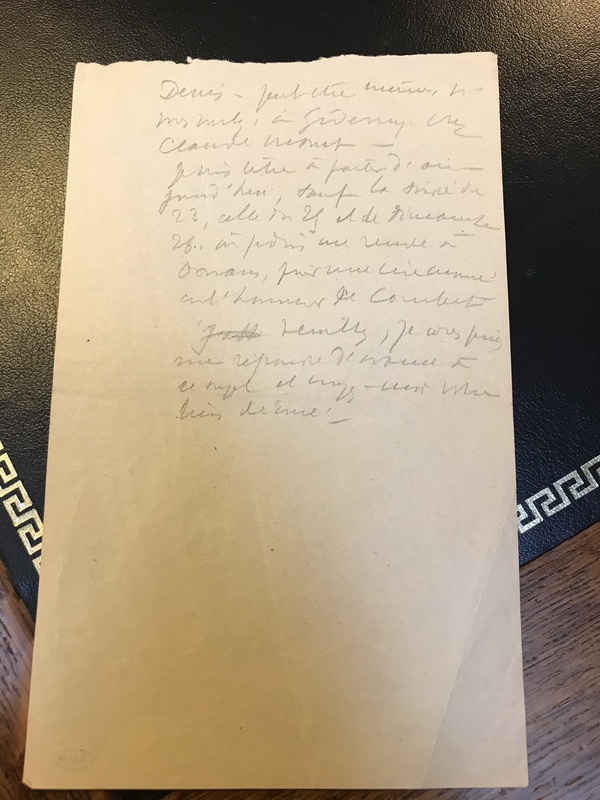 Denis – peut être même, si
vous voulez, à Giverny chez
Claude Monet –
Je suis libre à partir d'au-
jourd'hui, sauf la soirée du
23, celle du 25 et de dimanche
26, où je dois me rendre à
Ornans, pour une cérémonie
en l'honneur de Courbet
Veuillez, je vous prie,
me répondre d'avance à
ce sujet et croyez-moi votre
bien dévoué